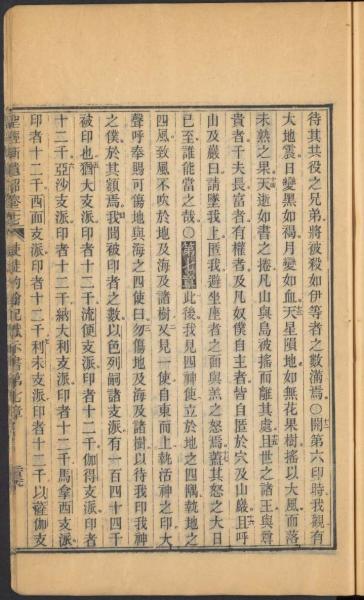 待其共役之兄弟將被殺如伊等者之數滿焉○開第六印時我觀有
大地震日變黑如褐月變如血天星隕地如無花果樹搖以大風而落
未熟之果天逝如書之捲凡山與島被搖而離其處且世之諸王與尊
貴者千夫長富者有權者及凡奴僕自主者皆自匿於穴及山巖且呼
山及巖曰請墜我上匿我避坐座者之面與羔之怒焉蓋其怒之大日
已至誰能當之哉○第七章此後我見四神使立於地之四隅執地之
四風致風不吹於地及海及諸樹又見一使自東而上執活神之印大
聲呼奉賜可傷地與海之四使曰勿傷地及海及諸樹以待我印我神
之僕於其額焉我聞被印者之數以色列嗣諸支派有一百四十四千
被印也猶大支派印者十二千流便支派印者十二千伽得支派印者
十二千亞沙支派印者十二千納大利支派印者十二千馬拿西支派
印者十二千西面支派印者十二千利未支派印者十二千以薩伽支
聖經新遺詔卷